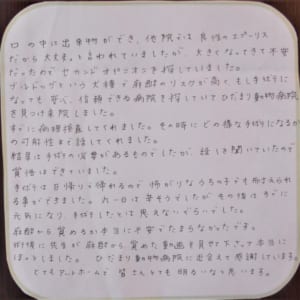 口の中に出来物ができ、他院では良性のエプーリス
だから大丈夫と言われていましたが、大きくなってきて不安
だったのでセカンドオピニオンを探していました。
ブルドッグという犬種で麻酔のリスクが高く、もし手術に
なっても安心、信頼できる病院を探していてひだまり動物病院
を見つけ来院しました。
すぐに病理検査してくれました。その時にどの様な手術になるか
の可能性まで話してくれました。
結果は手術の必要があるものでしたが、話しを聞いていたので
覚悟はできていました。
手術は日帰りで帰れるので怖がりなうちの子でも耐えられ
る事ができました。 一日は辛そうでしたがその後はすぐに
元気になり、手術したとは思えないぐらいでした。
麻酔から覚めるか本当に不安でたまらなかったです。
術後に先生が麻酔から覚めた動画を見せて下さって本当に
ほっとしました。ひだまり動物病院に出会えて感謝しています。
とてもアットホームで皆さんとても明るいなと思います。